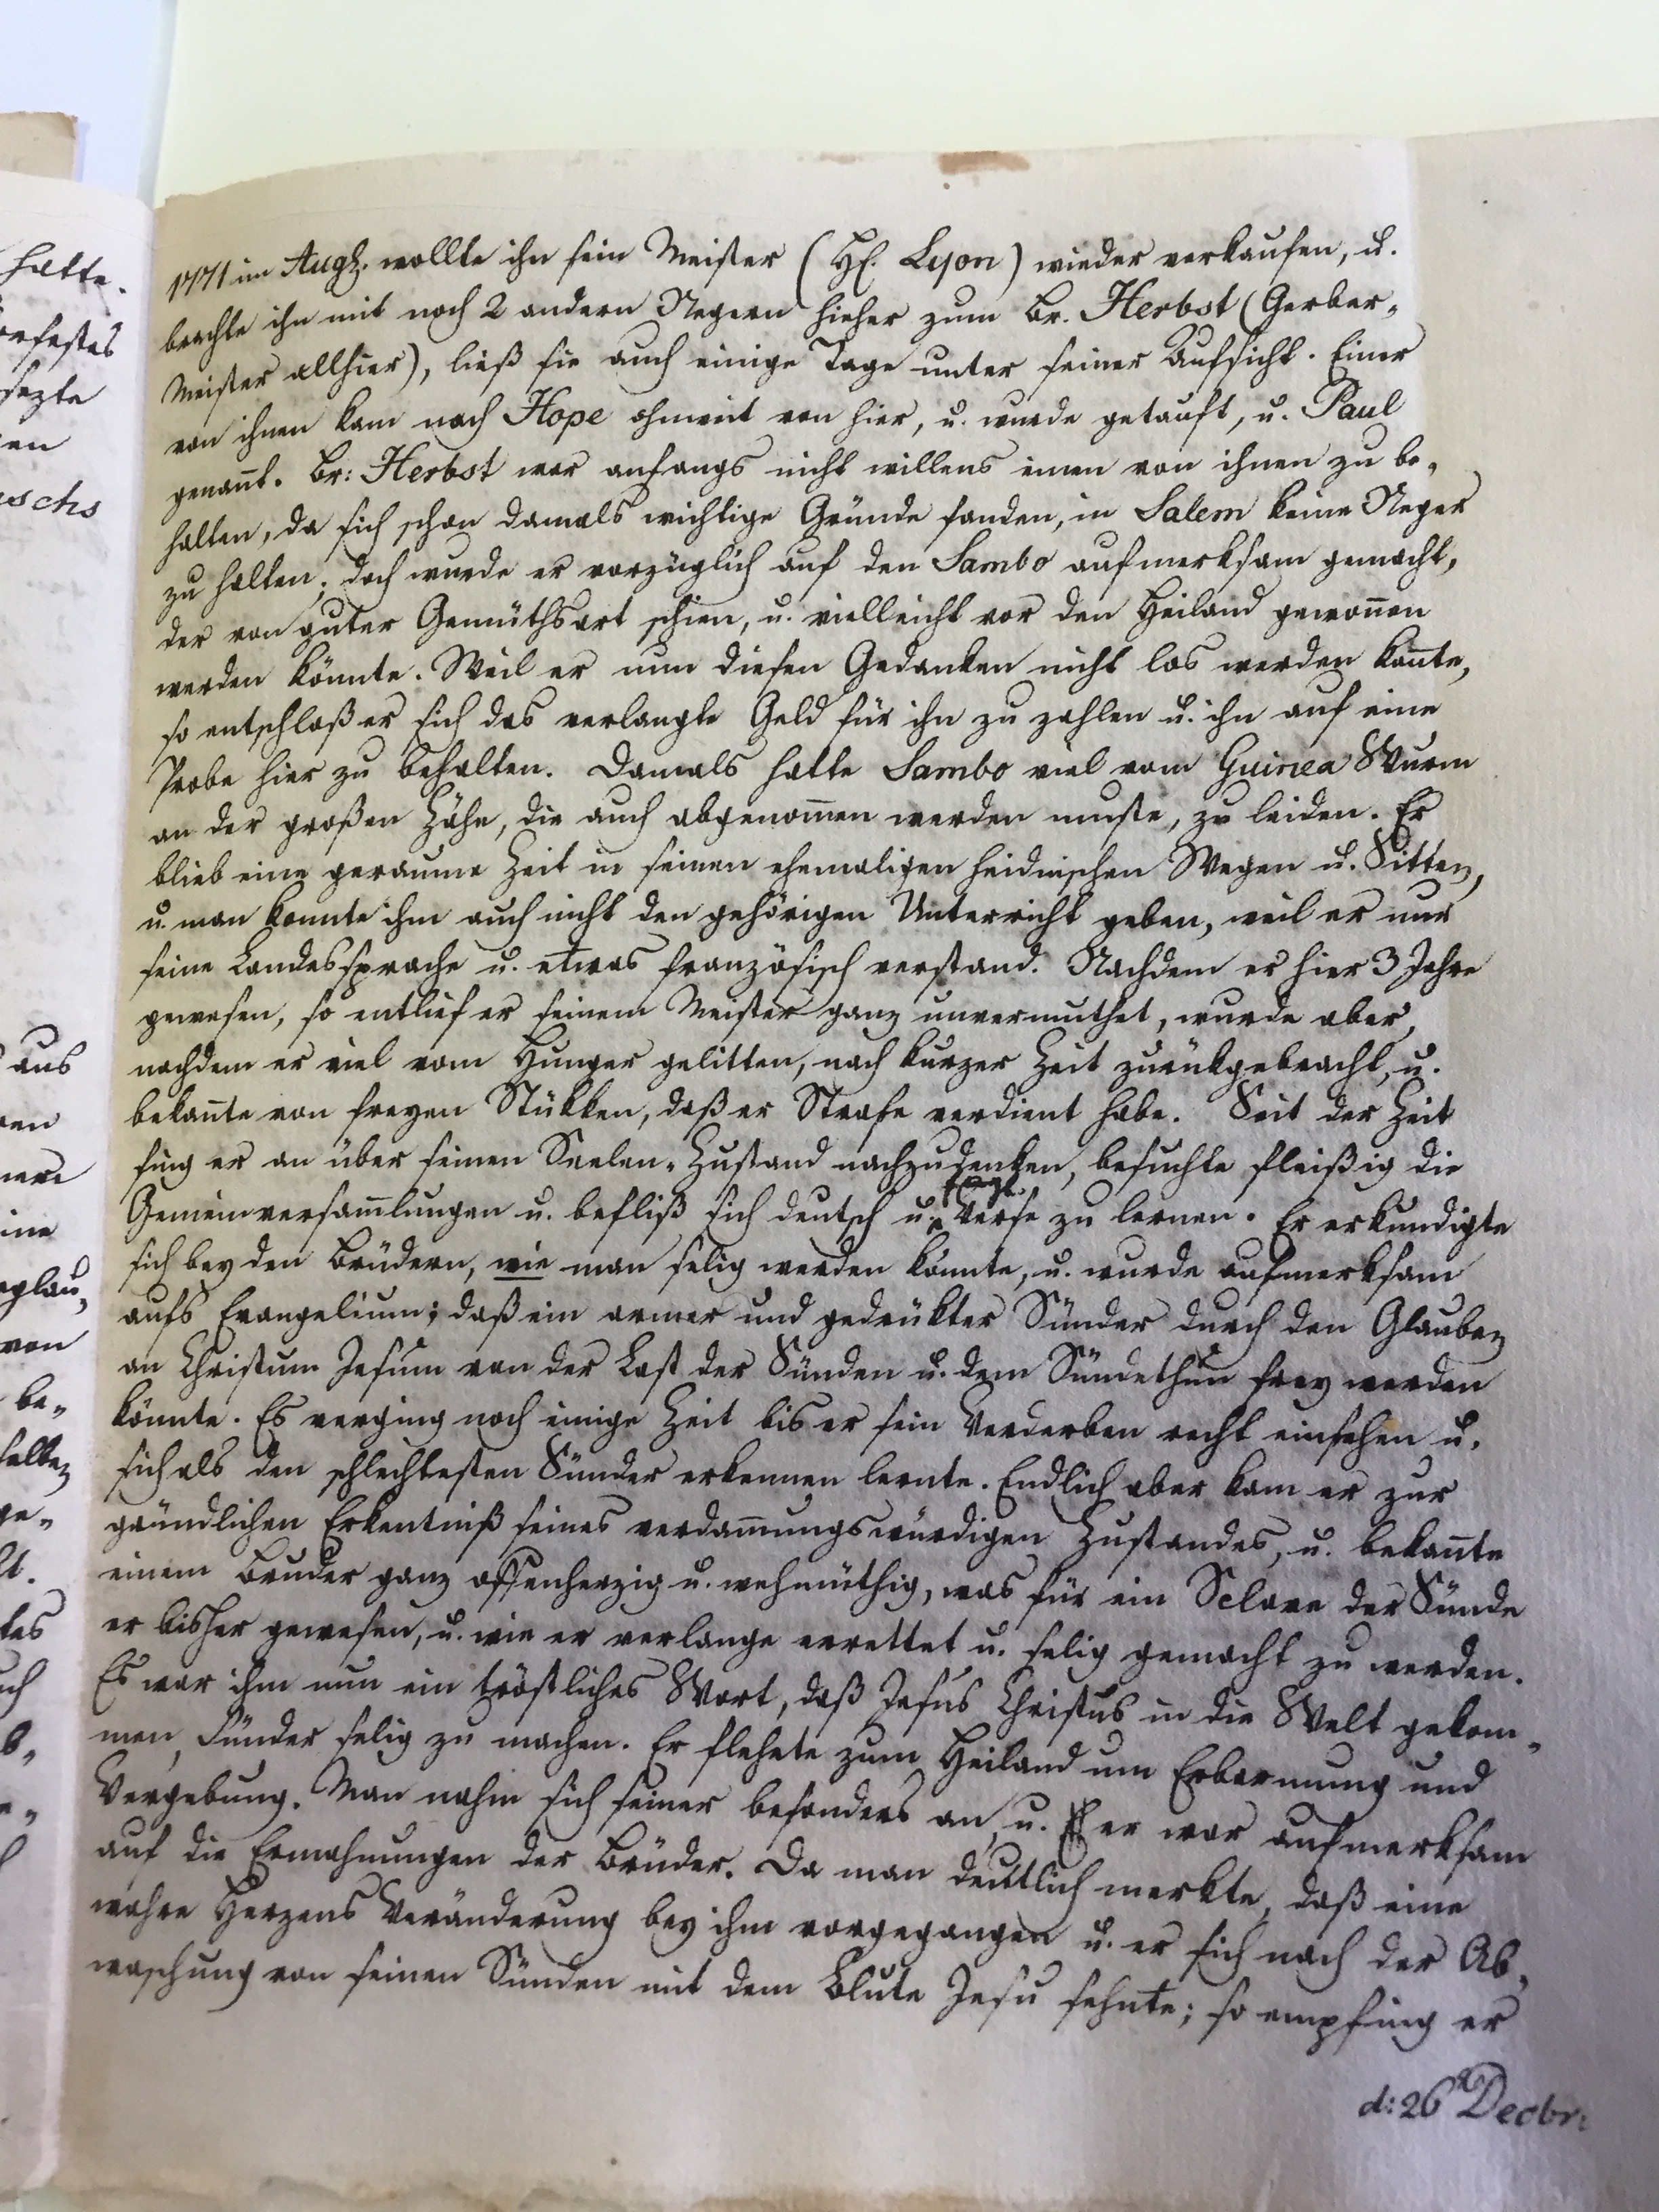 1771 im Augst. wollte ihn sein Meister (Hr. Lyon) wieder verkaufen, u.
brachte ihn mit noch 2 andern Negern hieher zum Br. Herbst (Gerber-
Meister allhier), ließ sie auch einige Tage unter seiner Aufsicht. Einer
von ihnen kam nach Hope ohnweit von hier, u. wurde getauft, u. Paul
genañt. Br: Herbst war anfangs nicht willens einen von ihnen zu be-
halten, da sich schon damals wichtige Gründe fanden, in Salem keine Neger
zu halten; doch wurde er vorzüglich auf den Sambo aufmerksam gemacht,
der von guter Gemüthsart schien, u. vielleicht vor den Heiland gewoñen
werden könnte. Weil er nun diesen Gedanken nicht los werden koñte,
so entschloß er sich das verlangte Geld für ihn zu zahlen u. ihn auf eine
Probe hier zu behalten. Damals hatte Sambo viel vom Guinea Wurm
an der großen Zähe, die auch abgenom̄en werden muste, zu leiden. Er
blieb eine geraume Zeit in seinen ehemaligen heidnischen Wegen u. Sitten,
u. man konnte ihm auch nicht den gehörigen Unterricht geben, weil er nur
seine Landessprache u. etwas französisch verstand. Nachdem er hier 3 Jahre
gewesen, so entlief er seinem Meister ganz unvermuthet, wurde aber,
nachdem er viel vom Hunger gelitten, nach kurzer Zeit zurükgebracht, u.
bekañte von freyen Stükken, daß er Strafe verdient habe. Seit der Zeit
fing er an über seinen Seelen-Zustand nachzudenken, besuchte fleißig die
Gemeinversam̄lungen u. befliß sich deutsch u. Verse zu lernen. Er erkundigte
sich bey den Brüdern, wie man selig werden könnte, u. wurde aufmerksam
aufs Evangelium; daß ein armer und gedrükter Sünder durch den Glauben
an Christum Jesum von der Last der Sünden u. dem Sündethun frey werden
könnte. Es verging noch einige Zeit bis er sein Verderben recht einsehen u.
sich als den schlechtesten Sünder erkennen lernte. Endlich aber kam er zur
gründlichen Erkentniß seines verdam̄ungswürdigen Zustandes, u. bekañte
einem Bruder ganz offenherzig u. wehmüthig, was für ein Sclave der Sünde
er bisher gewesen, u. wie er verlange errettet u. selig gemacht zu werden.
Es war ihm nun ein tröstliches Wort, daß Jesus Christus in die Welt gekom-
men, Sünder selig zu machen. Er flehete zum Heiland um Erbarmung und
Vergebung. Man nahm sich seiner besonders an, u. er war aufmerksam
auf die Ermahnungen der Brüder. Da man deutlich merkte, daß eine
wahre Herzens Veränderung bey ihm vorgegangen u. er sich nach der Ab-
waschung von seinen Sünden mit dem Blute Jesu sehnte; so empfing er
d: 26 Decbr: